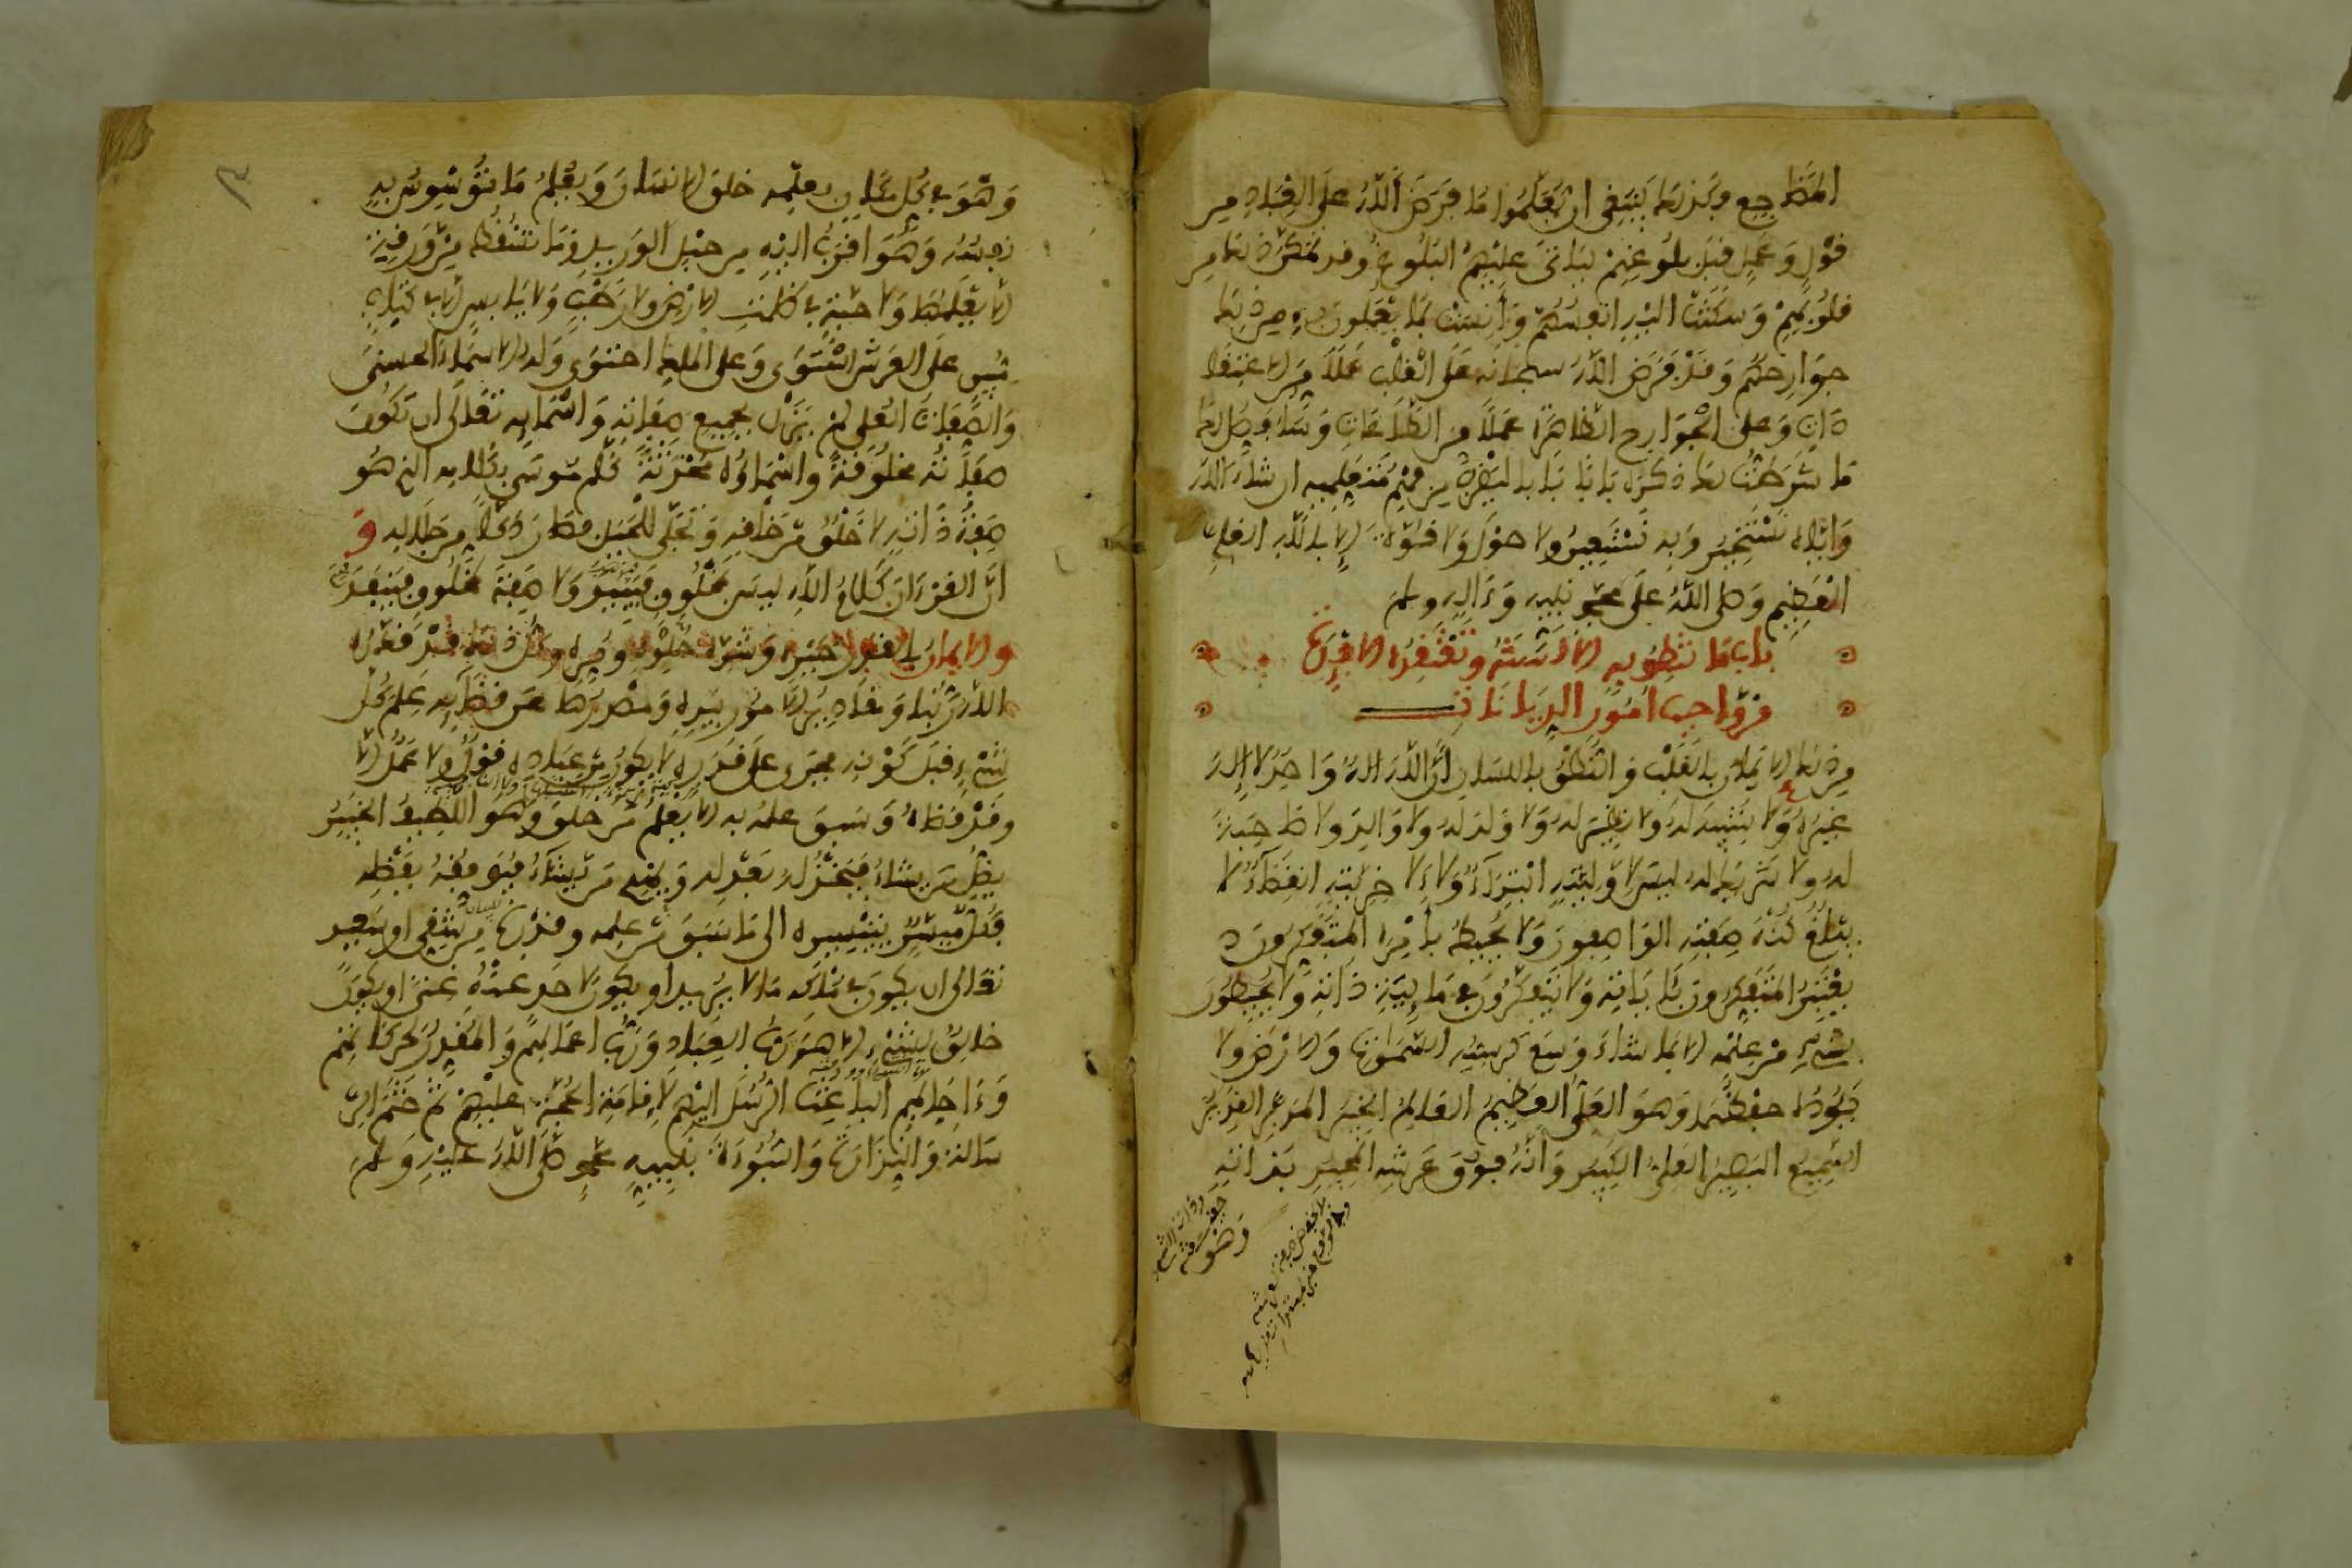 المضاجع وكذلك ينبغي ان يعلموا ما فرض الله على العباد من
قول وعمل قبل بلوغهم ليأتي عليهم البلوغ وقد تمكن ذلك من
قلوبهم وسكنت اليه انفسهم وأنست بما يعملون به من ذلك
جوارحهم وقد فرض الله سبحانه على القلب عملا من الاعتقا
دات وعلى الجوارح الظاهرة عملا من الطاعات وسأفصل لك
ما شرطت لك ذكره بابا بابا ليقرب من فهم متعلميه ان شاء الله
واياه نستخير وبه نستعين ولا حول ولا قوة الا بالله العلي
العظيم وصلى الله على محمد نبيه وءاله وسلم
باب ما تنطق به الألسنة وتعتقده الأفئدة
من واجب امور الديانات
من ذلك الايمان بالقلب والنطق باللسان أن الله اله واحد لا إله
غيره ولا شبيه له ولا نظير له ولا ولد له ولا والد ولا صاحبة
له ولا شريك له ليس لأوليته ابتداء ولا لاخريته انقضاء لا
يبلغ كنه صفته الواصفون ولا يحيط بأمره المتفكرون
يعتبر المتفكرون بآياته ولا يتفكرون في مائية ذاته ولا يحيطون
بشيء من علمه الا بما شاء وسع كرسيه السموات والارض ولا
يئوده حفظهما وهو العلي العظيم العالم الخبير المدبر القدير
السميع البصير العلي الكبير وأنه فوق عرشه المجيد بذاته
وهو في كل مكان بعلمه خلق الانسان ويعلم ما توسوس به
نفسه وهو اقرب اليه من حبل الوريد وما تسقط من ورقة
الا يعلمها ولا حبة في ظلمت الارض ولا رطب ولا يابس الا في كتاب
مبين على العرش استوى وعلى الملك احتوى وله الاسماء الحسنى
والصفات العلى لم يزل بجميع صفاته واسمائه تعالى ان تكون
صفاته مخلوقة واسماؤه محدثة كلم موسى بكلامه الذي هو
صفة ذاته لا خلق من خلقه وتجلى للجبل فصار دكا من جلاله و
ان القرءان كلام الله ليس بمخلوق فيبيد ولا صفة لمخلوق فينفد
والايمان بالقدر خيره وشره حلوه ومره وكل ذلك قد قدره
الله ربنا ومقادير الامور بيده ومصدرها عن قضائه علم كل
شيء قبل كونه فجرى على قدره لا يكون من عباده قول ولا عمل الا
وقد قضاه وسبق علمه به الا يعلم من خلق وهو اللطيف الخبير
يضل من يشاء فيخذله بعدله ويهدي من يشاء فيوفقه بفضله
فكل ميسر بتيسيره الى ما سبق من علمه وقدره من شقي او سعيد
تعالى ان يكون في ملكه ما لا يريد او يكون لاحد عنه غنى او يكون
خالق لشيء الا هو رب العباد ورب اعمالهم والمقدر لحركاتهم
وءاجالهم الباعث الرسل اليهم لإقامة الحجة عليهم ثم ختم الر
سالة والنذارة والنبوءة بنبيه محمد صلى الله عليه وسلم